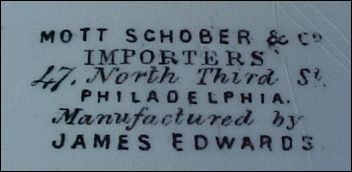 MOTT SCHOBER & Co
IMPORTERS
47. North Third St.
PHILADELPHIA.
Manufactured by
JAMES EDWARDS